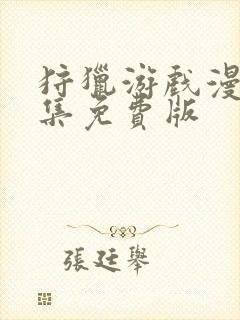 狩獵游戲漫
集免費版
張廷舉